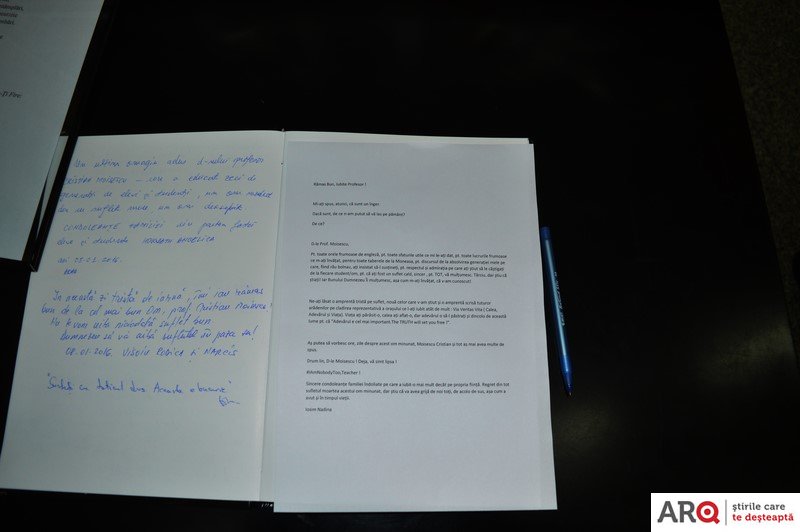 Un ultim omagiu adus d-nului profesor
CRISTIAN MOISESCU – care a educat zeci de
generații de elevi și studenți, un om modest
dar cu suflet mare, un om deosebit.
CONDOLEANȚE FAMILIEI din partea fostei
eleve și studente ANGELICA
08.01.2016.
ARAD
În această zi tristă de iarnă, îmi iau rămas
bun de la cel mai bun Om, prof. Cristian Moisescu!
Nu te vom uita niciodată suflet bun
Dumnezeu să vă aibă sufletul în paza sa!
08.01.2016 VISOIU RODICA și NARCIS
Rămas Bun, Iubite Profesor !
Mi-ați spus, atunci, că sunt un înger.
Dacă sunt, de ce n-am putut să vă țeu pe pământ?
De ce?
D-le Prof. Moisescu,
Pt. toate orele frumoase de engleză, pt. toate sfaturile utile ce mi le-ați dat, pt. toate lucrurile frumoase
ce m-ați învățat, pentru toate taberele de la Moneasa, pt. discursul de la absolvirea generației mele pe
care, fiind rău bolnav, ați insistat să-l susțineți, pt. respectul și admirația pe care ați știut să le câștigați
de la fiecare student/om, pt. că ați fost un suflet cald, sincer , pt. TOT, vă mulțumesc. Târziu, dar știu că
și Iar Bunului Dumnezeu îi mulțumesc, așa cum m-ați învățat, că v-am cunoscut!
Ne-ați lăsat o amprentă tristă pe suflet, nouă celor care v-am știut și o amprentă scrisă tuturor
arădenilor pe clădirea reprezentativă a orașului ce l-ați iubit atât de mult : Via Veritas Vita ( Calea,
Adevărul și Viața). Viața ați părăsit-o, calea ați aflat-o, dar adevărul o să-l păstrați și dincolo de această
lume pt. că "Adevărul e cel mai important.The TRUTH will set you free !"
Aș putea să vorbesc ore, zile despre acest om minunat, Moisescu Cristian și tot aș mai avea multe de
spus.
Drum lin, D-le Moisescu ! Deja, vă simt lipsa !
#IAmNobodyToo,Teacher !
Sincere condoleanțe familiei îndoliate pe care a iubit-o mai mult decât pe propria ființă. Regret din tot
sufletul moartea acestui om minunat, dar știu că va avea grijă de noi toți, de acolo de sus, așa cum a
avut și în timpul vieții.
Iosim Nadina
ARQ
știrile care
te deșteaptă